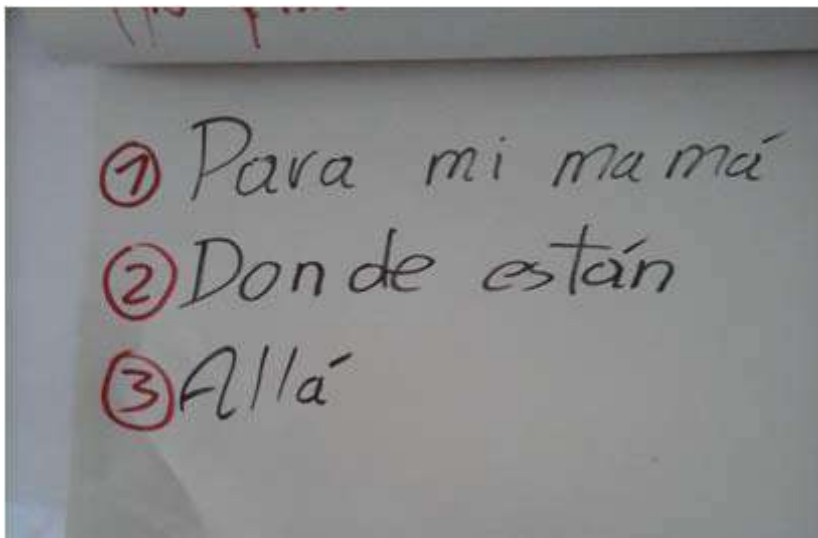 ① Para mi mamá
② Donde están
③ Allá